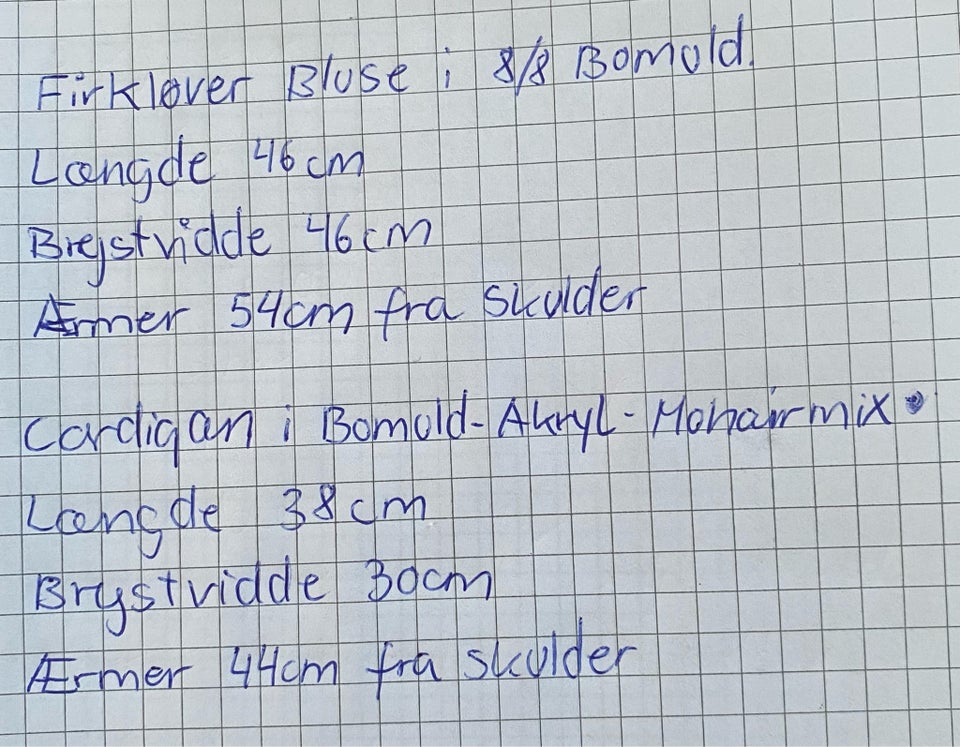 Firkløver Bluse i 8/8 Bomold.
Længde 46cm
Brystvidde 46cm
Ærmer 54cm fra skulder
Cardigan i Bomuld-Akryl-Mohairmix
Længde 38cm
Brystvidde 30cm
Ærmer 44cm fra skulder